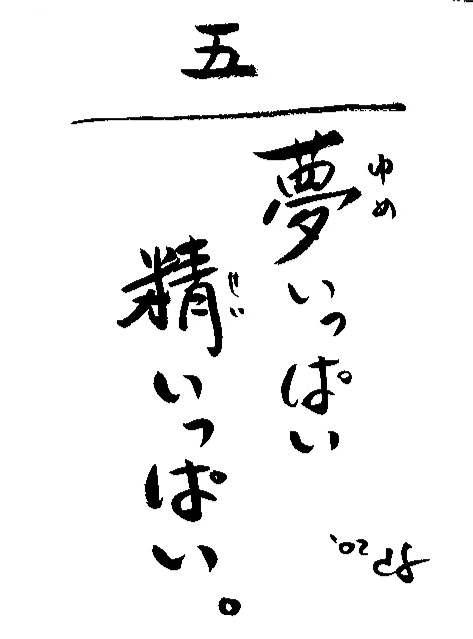 五
夢いっぱい
ゆめ
精いっぱい。
せい
'02